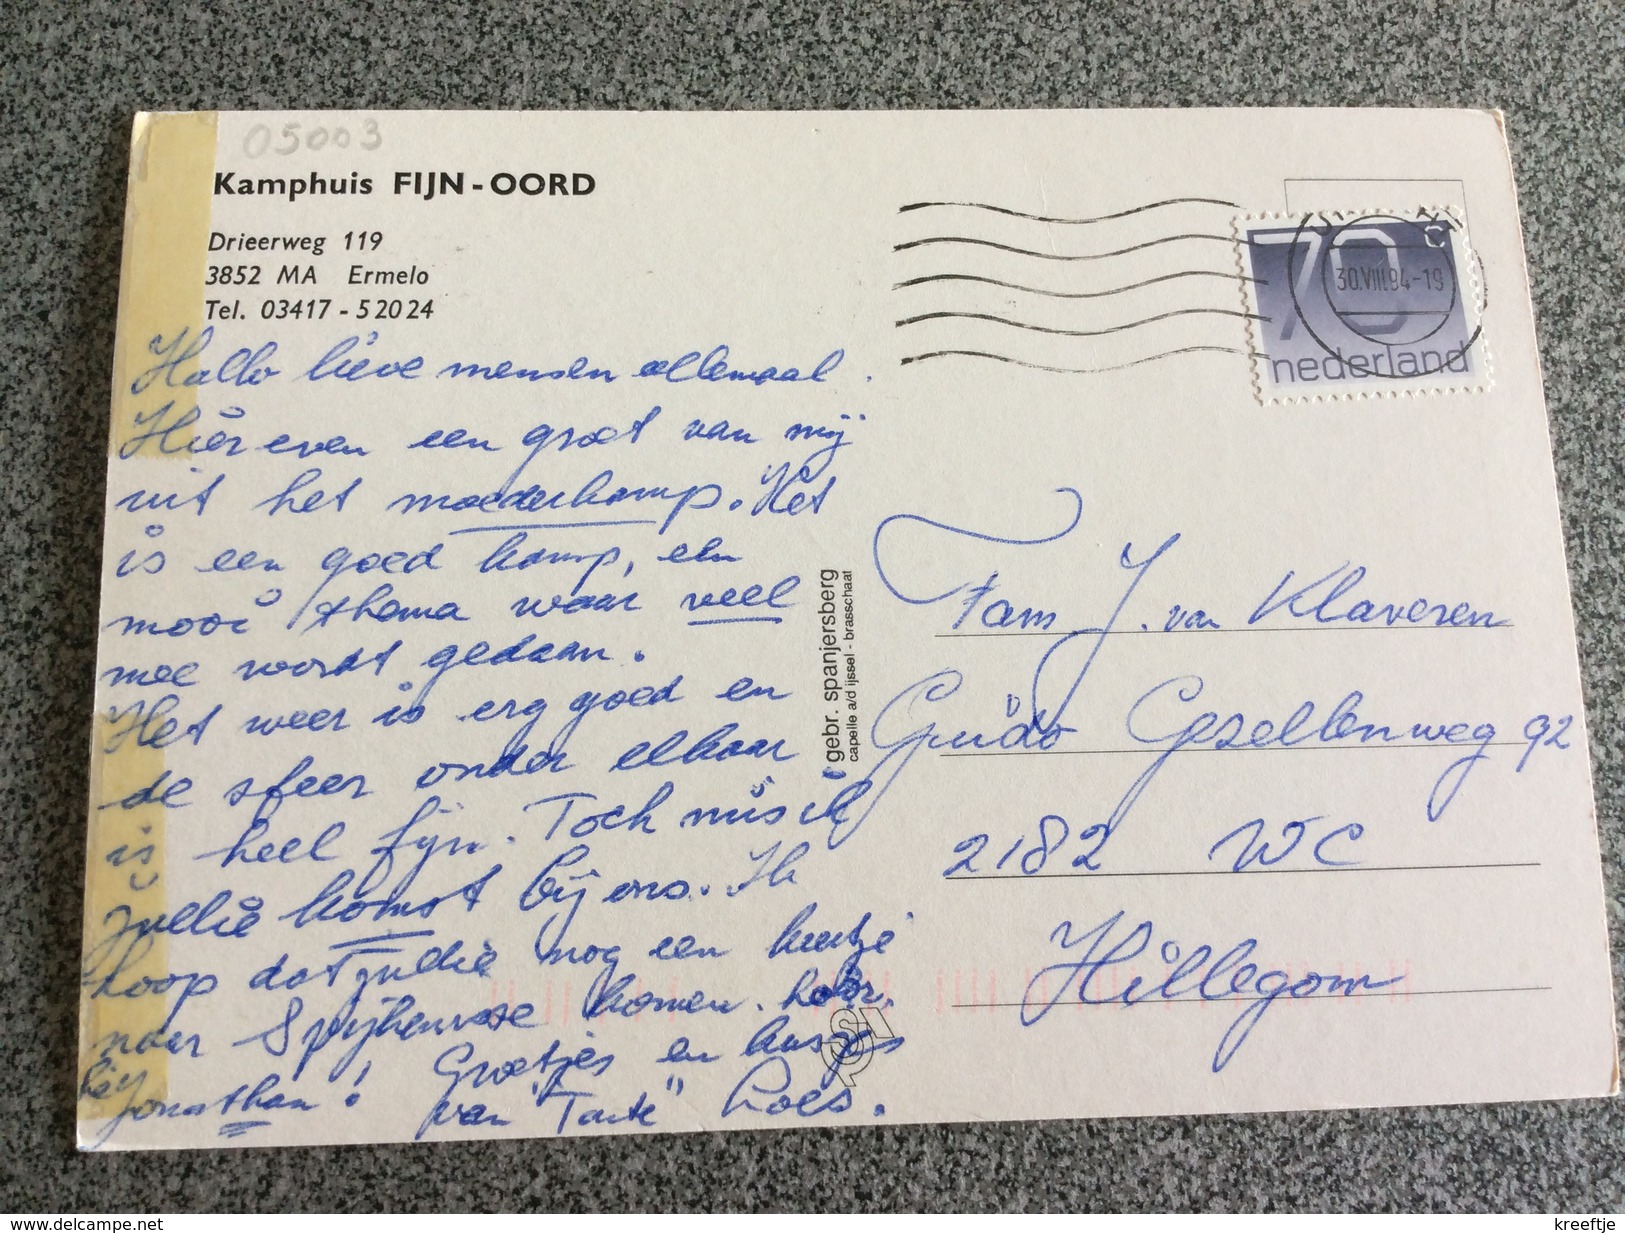 05003
Kamphuis FIJN-OORD
Drieerweg 119
3852 MA Ermelo
Tel. 03417-52024
Hallo lieve mensen allemaal.
Hier even een groet van mij
uit het moederkamp. Het
is een goed kamp, een
mooi thema waar veel
mee wordt gedaan.
Het weer is erg goed en
de sfeer onder elkaar
is heel fijn. Toch mis ik
jullie komst bij ons. Ik
hoop dat jullie nog een keertje
naar Spijkenisse komen. hoor.
hé Jonathan! Groetjes en kusjes
van "Tante" Loes.
gebr. spanjersberg
capelle a/d ijssel - brasschaat
70 c
nederland
30.VIII.94-19
Fam J. van Klaveren
Guido Gesellenweg 92
2182 WC
Hillegom
www.delcampe.net
kreeftje